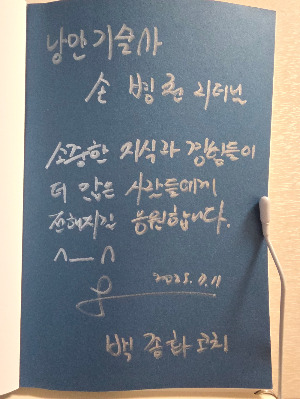 낭만기술사
손 병천 리더님
소중한 지식과 경험들이
더 많은 사람들에게
전해지길 응원합니다.
^__^
2025.7.11
백 종화 코치